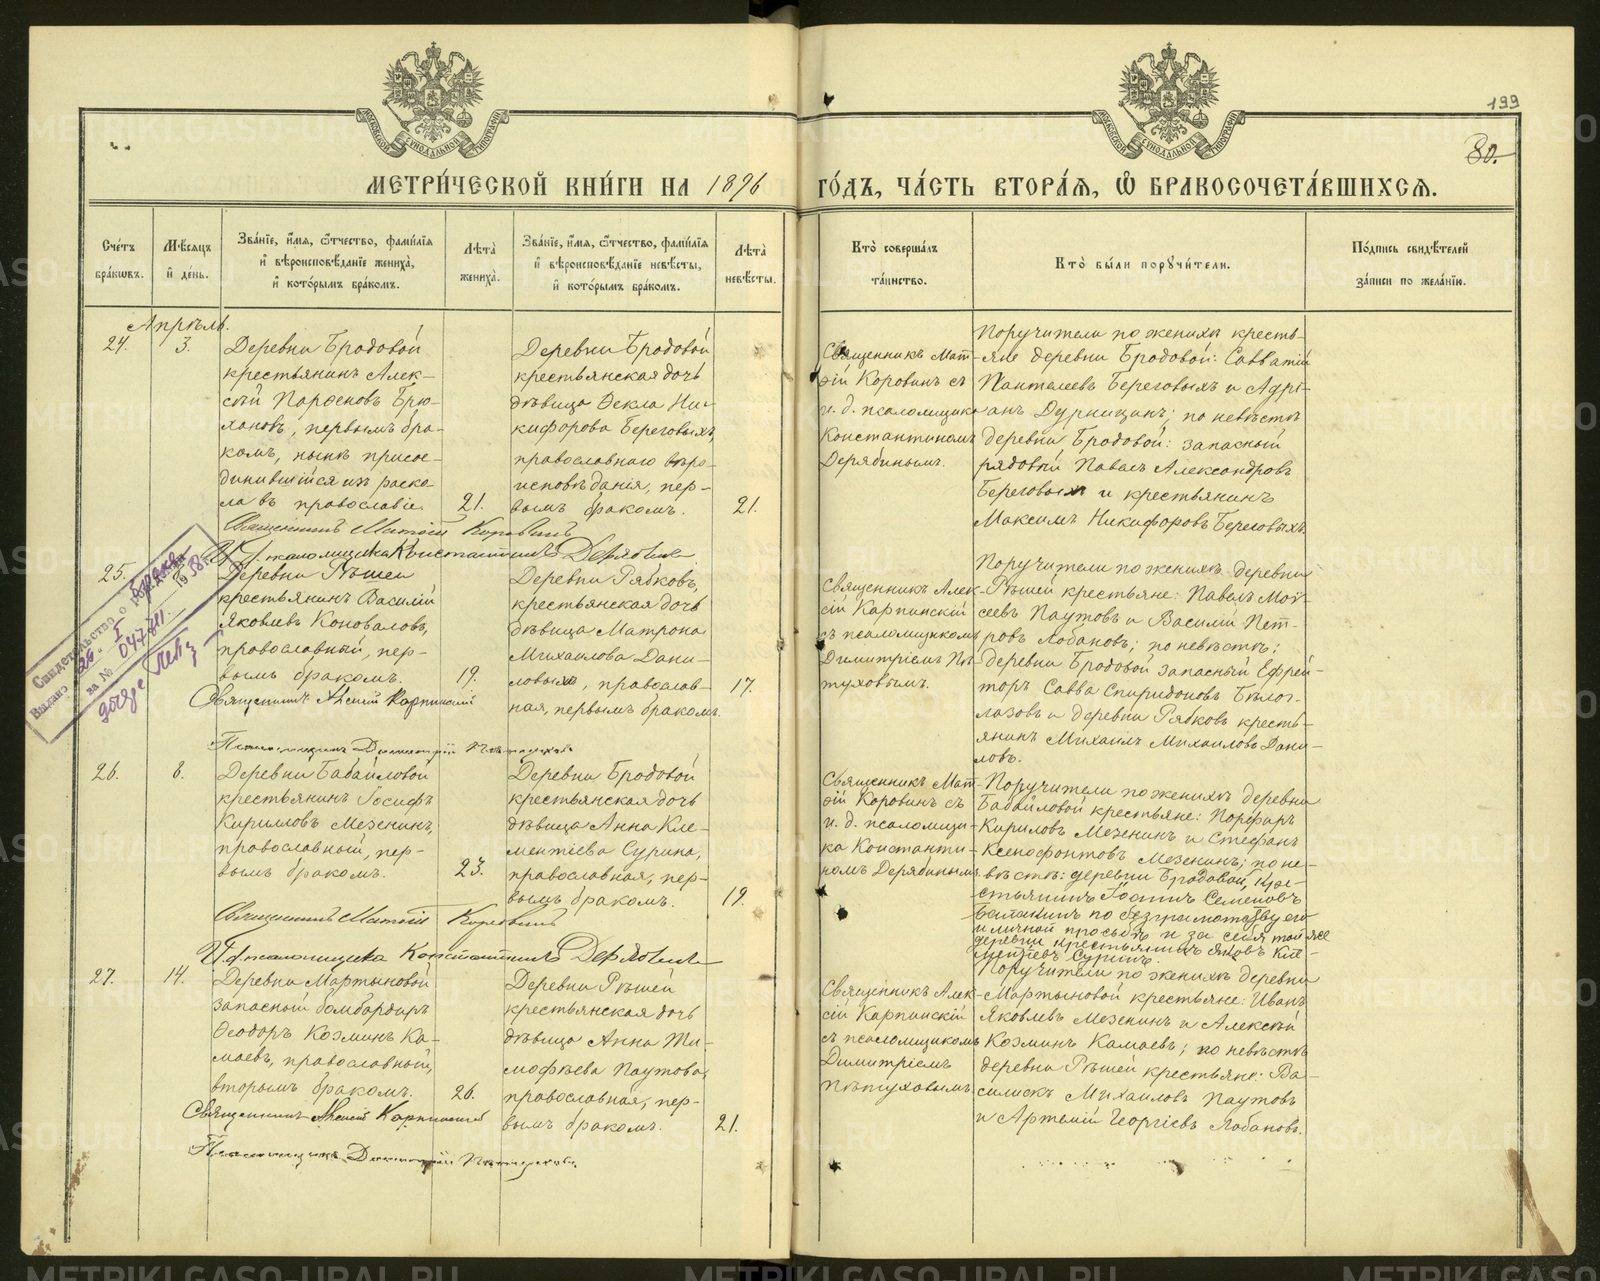 199
80.
МЕТРИЧЕСКОЙ КНИГИ НА 1896 ГОДЪ, ЧАСТЬ ВТОРАЯ, Ѿ БРАКОСОЧЕТАВШИХСЯ.
Счетъ браковъ.
Мѣсяцъ и день.
Званіе, имя, ѿтчество, фамилія и вѣроисповѣданіе жениха, и которымъ бракомъ.
Лѣта жениха.
Званіе, имя, ѿтчество, фамилія и вѣроисповѣданіе невѣсты, и которымъ бракомъ.
Лѣта невѣсты.
Кто совершалъ таинство.
Кто были поручители.
Подпись свидѣтелей записи по желанію.
Апрѣль.
24.
3.
Деревни Бродовой
крестьянинъ Алек-
сѣй Парѳеновъ Брю-
хановъ, первымъ бра-
комъ, нынѣ присое-
динившійся изъ раско-
ла въ православіе.
21.
Деревни Бродовой
крестьянская дочь
дѣвица Ѳекла Ни-
кифорова Береговыхъ,
православнаго вѣро-
исповѣданія, пер-
вымъ бракомъ.
21.
Священникъ Мат-
ѳій Коровинъ съ
и. д. псаломщика
Константиномъ
Дерябинымъ.
Поручители по женихѣ кресть-
яне деревни Бродовой: Савватій
Пантелеевъ Береговыхъ и Адрі-
анъ Дурницинъ; по невѣстѣ
деревни Бродовой: запасный
рядовый Павелъ Александровъ
Береговыхъ и крестьянинъ
Максимъ Никифоровъ Береговыхъ.
Священникъ Матѳій Коровинъ
И. д. псаломщика Константинъ Дерябинъ
25.
Деревни Рѣшеи
крестьянинъ Василій
Яковлевъ Коноваловъ,
православный, пер-
вымъ бракомъ.
19.
Деревни Рябковъ,
крестьянская дочь
дѣвица Матрона
Михаилова Дани-
ловыхъ, православ-
ная, первымъ бракомъ.
17.
Священникъ Алек-
сій Карпинскій
съ псаломщикомъ
Димитріемъ Пѣ-
туховымъ.
Поручители по женихѣ деревни
Рѣшей крестьяне: Павелъ Мои-
сеевъ Паутовъ и Василій Пет-
ровъ Лобановъ; по невѣстѣ:
деревни Бродовой запасный Ефрей-
торъ Савва Спиридоновъ Бѣлог-
лазовъ и деревни Рябковъ кресть-
янинъ Михаилъ Михаиловъ Дани-
ловъ.
Священникъ Алексій Карпинскій
Псаломщикъ Димитрій Пѣтуховъ
Свидѣтельство о
брака
Выдано
за №
26.
8.
Деревни Бабайловой
крестьянинъ Іосифъ
Кирилловъ Мезенинъ,
православный, пер-
вымъ бракомъ.
23.
Деревни Бродовой
крестьянская дочь
дѣвица Анна Кле-
ментіева Сурина,
православная, пер-
вымъ бракомъ.
19.
Священникъ Мат-
ѳій Коровинъ съ
и. д. псаломщи-
ка Константи-
номъ Дерябинымъ
Поручители по женихѣ деревни
Бабайловой крестьяне: Порфиръ
Кириловъ Мезенинъ и Стефанъ
Ксенофонтовъ Мезенинъ; по не-
вѣстѣ: деревни Бродовой, кре-
стьянинъ Іоаннъ Семеновъ
по безграмотству его
и личной просьбѣ и за себя той же
деревни крестьянинъ Яковъ Кле-
ментіевъ Суринъ.
Священникъ Матѳій Коровинъ
И. д. псаломщика Константинъ Дерябинъ
27.
14.
Деревни Мартыновой
запасный бомбардиръ
Ѳеодоръ Козминъ Ка-
маевъ, православный,
вторымъ бракомъ.
26.
Деревни Рѣшей
крестьянская дочь
дѣвица Анна Ти-
мофѣева Паутова,
православная, пер-
вымъ бракомъ.
21.
Священникъ Алек-
сій Карпинскій
съ псаломщикомъ
Димитріемъ
Пѣтуховымъ
Поручители по женихѣ деревни
Мартыновой крестьяне: Иванъ
Яковлевъ Мезенинъ и Алексѣй
Козминъ Камаевъ; по невѣстѣ
деревни Рѣшей крестьяне: Ва-
силискъ Михаиловъ Паутовъ
и Артемій Георгіевъ Лобановъ.
Священникъ Алексій Карпинскій
Псаломщикъ Димитрій Пѣтуховъ.
METRIKI.GASO-URAL.RU